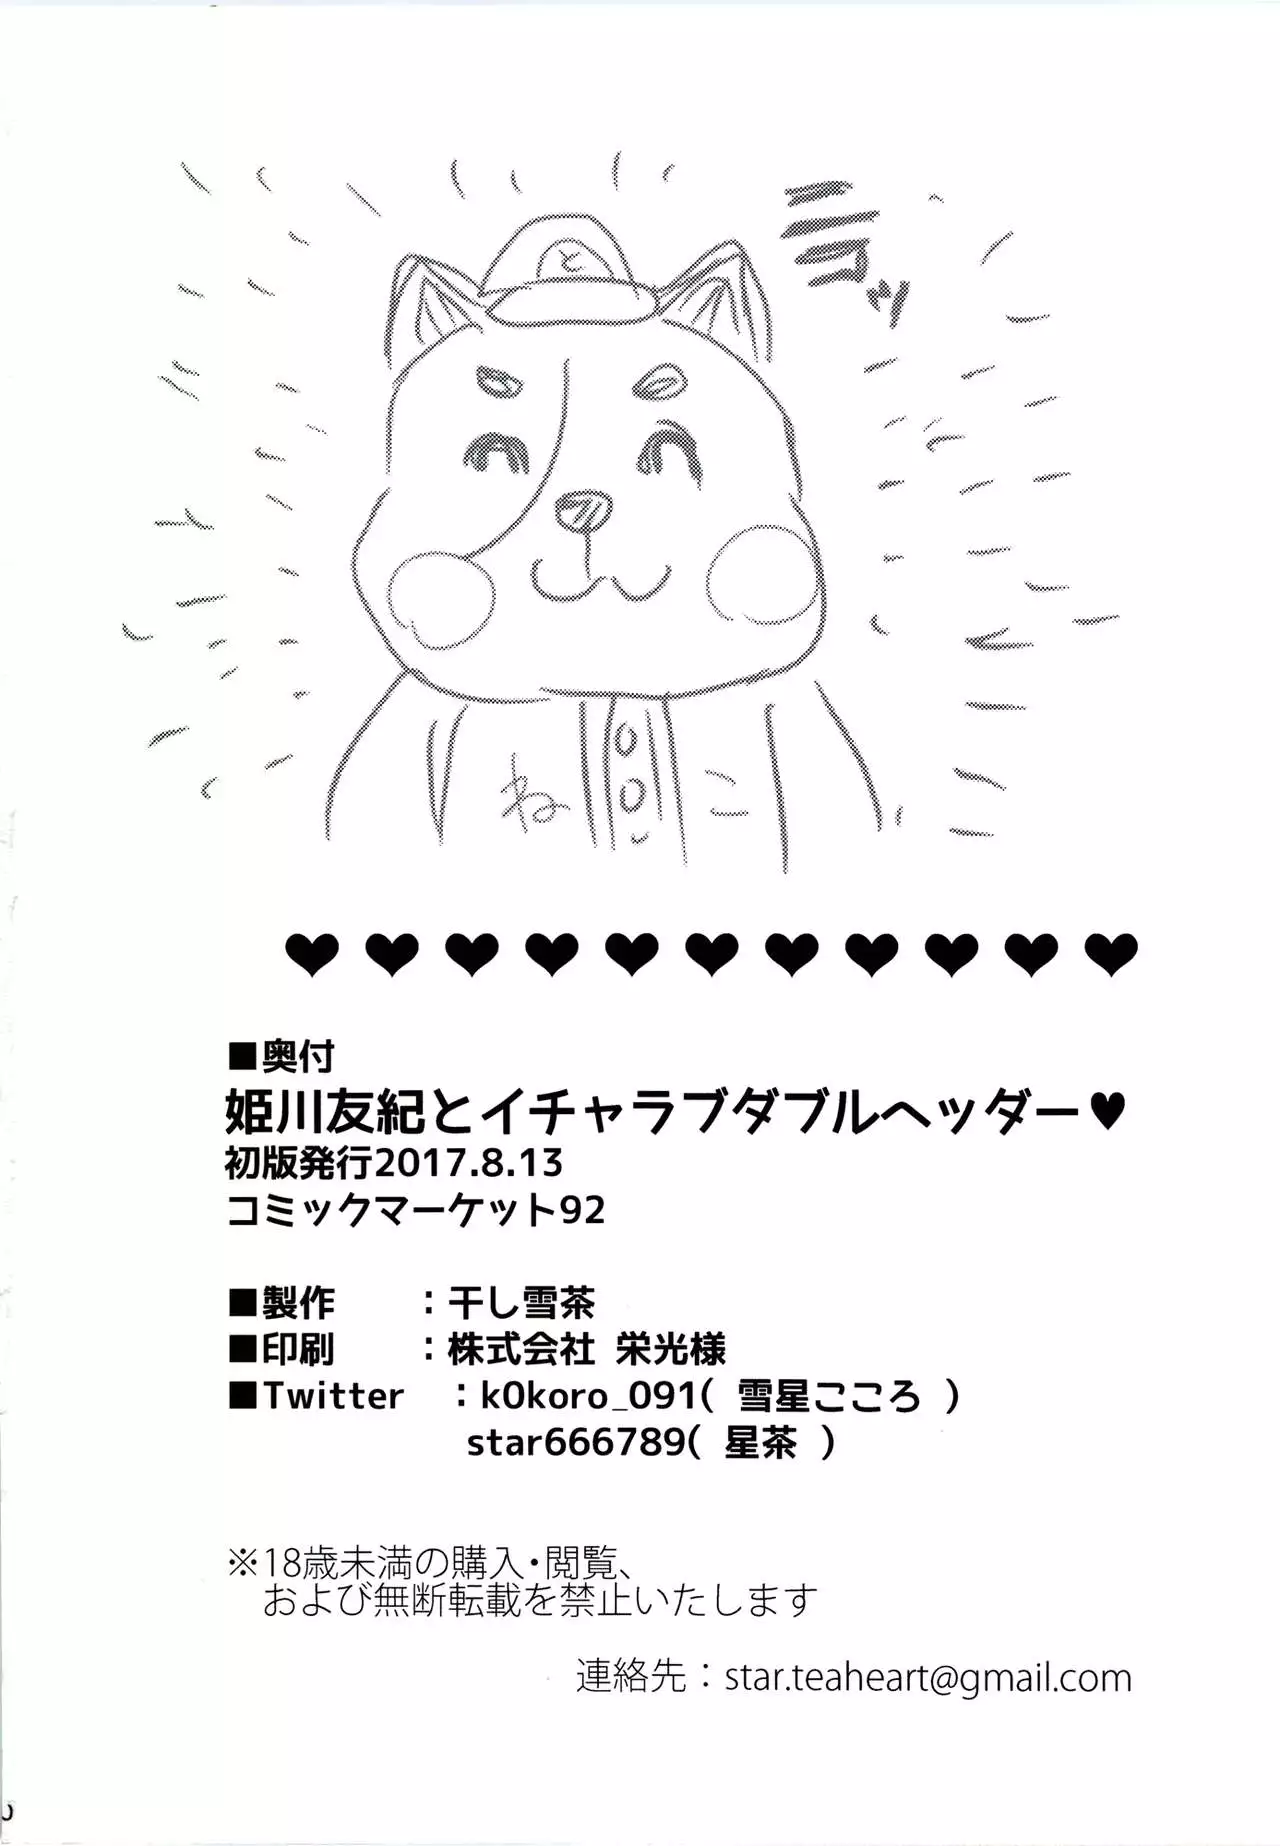 ニコッ
と
ねこ
■奥付
姫川友紀とイチャラブダブルヘッダー♥
初版発行2017.8.13
コミックマーケット92
■製作 ：干し雪茶
■印刷 ：株式会社 栄光様
■Twitter ：k0koro_091( 雪星こころ )
star666789( 星茶 )
※18歳未満の購入・閲覧、
および無断転載を禁止いたします
連絡先：star.teaheart@gmail.com